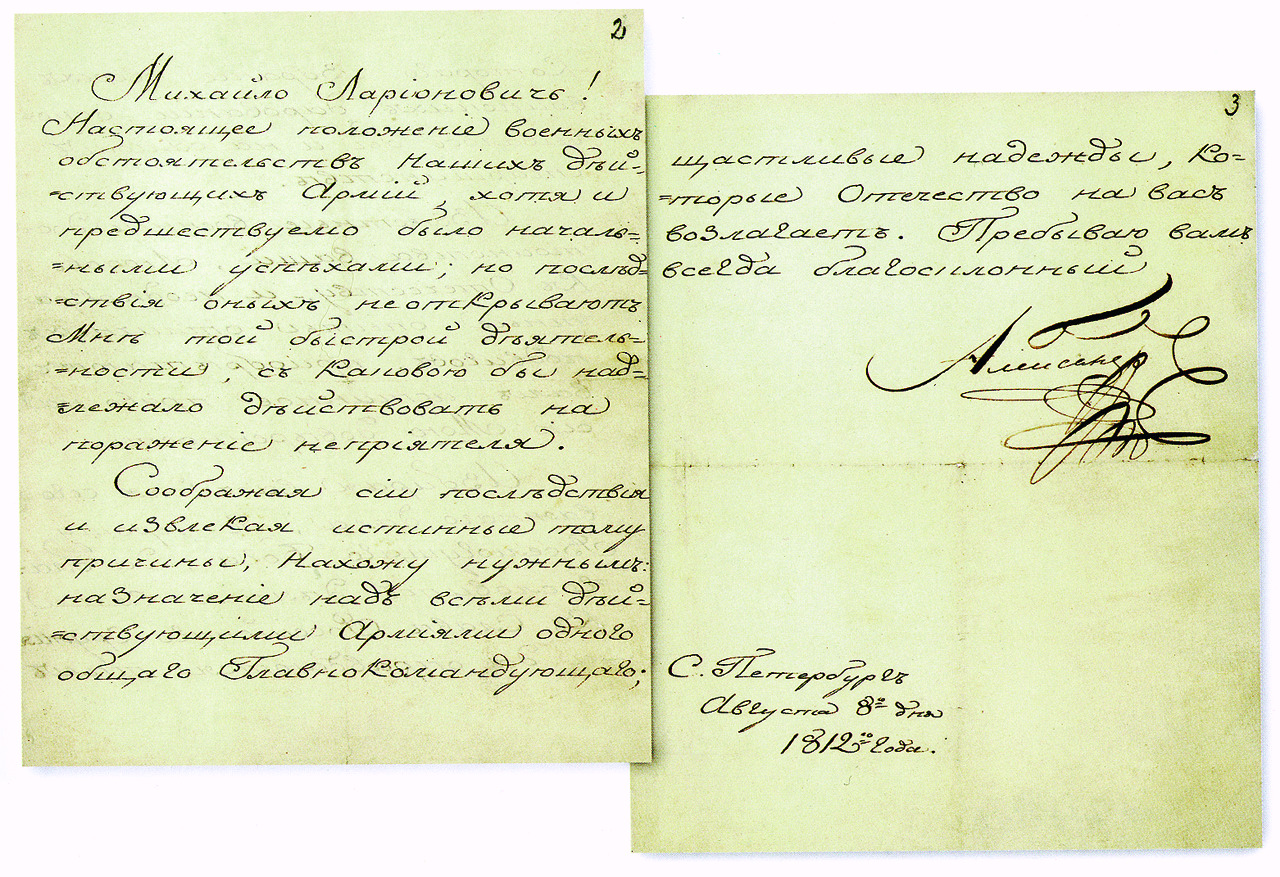 2
Михайло Ларіоновичъ!
Настоящее положеніе военныхъ
обстоятельствъ Нашихъ дѣй=
=ствующихъ Армій, хотя и
предшествуемо было началь=
=ными успѣхами; но послѣд=
=ствія оныхъ неоткрываютъ
Мнѣ той быстрой дѣятель=
=ности, съ каковою бы над=
=лежало дѣйствовать на
пораженіе непріятеля.
Соображая сіи послѣдствія
и извлекая истинные тому
причины, Нахожу нужнымъ:
назначеніе надъ всѣми дѣй=
=ствующими Арміями одного
общаго Главнокомандующаго;
3
щастливые надежды, ко=
=торые Отечество на васъ
возлагаетъ. Пребываю вамъ
всегда благосклонный
Александръ
С. Петербургъ
Августа 8го дня
1812го года.